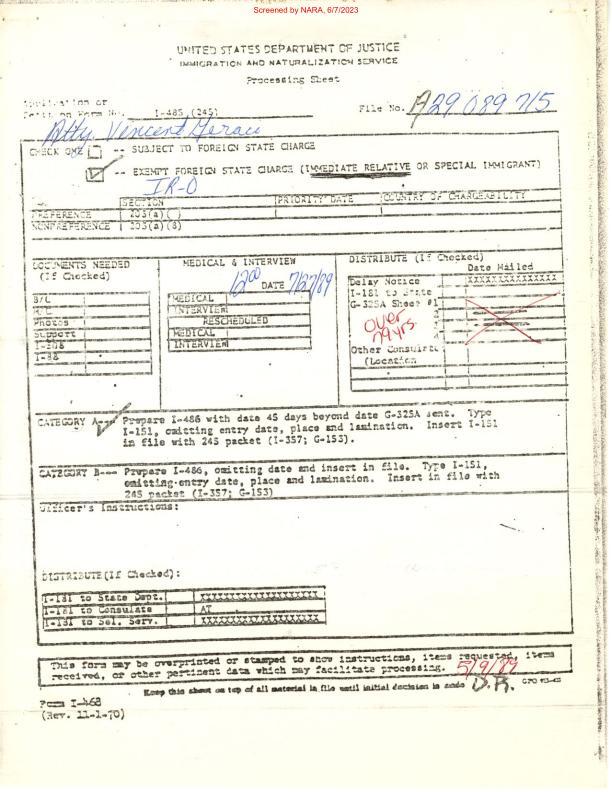 Screened by NARA, 6/7/2023
UNITED STATES DEPARTMENT OF JUSTICE
IMMIGRATION AND NATURALIZATION SERVICE
Processing Sheet
Application or
Petition Form No. I-485 (245) File No. A29 089 715
Atty Vincent
CHECK ONE -- SUBJECT TO FOREIGN STATE CHARGE
-- EXEMPT FOREIGN STATE CHARGE (IMMEDIATE RELATIVE OR SPECIAL IMMIGRANT)
IR-0
SECTION PRIORITY DATE COUNTRY OF CHARGEABILITY
PREFERENCE 203(a)( )
NONPREFERENCE 203(a)(8)
DOCUMENTS NEEDED
(If Checked)
B/C
M/C
Photos
Support
I-88
MEDICAL & INTERVIEW
1200 DATE 7/27/89
MEDICAL
INTERVIEW
RESCHEDULED
MEDICAL
INTERVIEW
DISTRIBUTE (If Checked)
Date Mailed
Delay Notice XXXXXXXXXXXXXXX
I-181 to State
G-325A Sheet #1
over
79 yrs.
Other Consulate
(Location
CATEGORY A--- Prepare I-486 with date 45 days beyond date G-325A sent. Type
I-151, omitting entry date, place and lamination. Insert I-151
in file with 245 packet (I-357; G-153).
CATEGORY B--- Prepare I-486, omitting date and insert in file. Type I-151,
omitting entry date, place and lamination. Insert in file with
245 packet (I-357; G-153)
Officer's Instructions:
DISTRIBUTE(If Checked):
I-181 to State Dept. XXXXXXXXXXXXXXXXXXXX
I-181 to Consulate AT
I-181 to Sel. Serv. XXXXXXXXXXXXXXXXXXXX
This form may be overprinted or stamped to show instructions, items requested, items
received, or other pertinent data which may facilitate processing. 5/9/89
Keep this sheet on top of all material in file until initial decision is made D.R.
Form I-468
(Rev. 11-1-70)